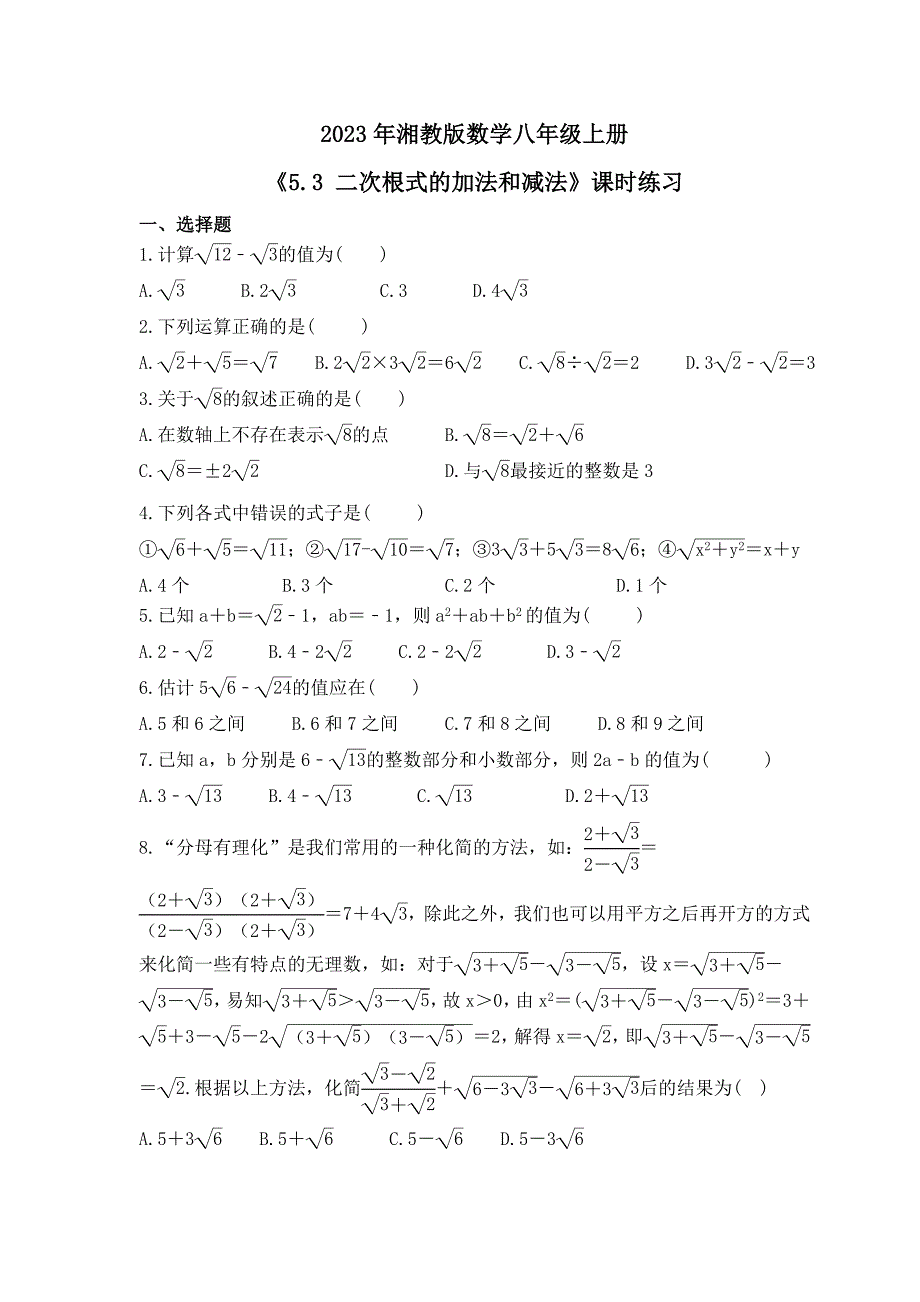 2023年湘教版数学八年级上册
《5.3 二次根式的加法和减法》课时练习
一、选择题
1.计算√12﹣√3的值为(    )
A.√3    B.2√3    C.3    D.4√3
2.下列运算正确的是(    )
A.√2＋√5＝√7    B.2√2×3√2＝6√2    C.√8÷√2＝2    D.3√2﹣√2＝3
3.关于√8的叙述正确的是(    )
A.在数轴上不存在表示√8的点    B.√8＝√2＋√6
C.√8＝±2√2    D.与√8最接近的整数是3
4.下列各式中错误的式子是(    )
①√6＋√5＝√11；②√17-√10＝√7；③3√3＋5√3＝8√6；④√(x²＋y²)＝x＋y
A.4个    B.3个    C.2个    D.1个
5.已知a＋b＝√2﹣1，ab＝﹣1，则a²＋ab＋b²的值为(    )
A.2﹣√2    B.4﹣2√2    C.2﹣2√2    D.3﹣√2
6.估计5√6﹣√24的值应在(    )
A.5和6之间    B.6和7之间    C.7和8之间    D.8和9之间
7.已知a，b分别是6﹣√13的整数部分和小数部分，则2a﹣b的值为(    )
A.3﹣√13    B.4﹣√13    C.√13    D.2＋√13
8.“分母有理化”是我们常用的一种化简的方法，如：(2＋√3)/(2－√3)＝
（2＋√3）（2＋√3）/（2－√3）（2＋√3）＝7＋4√3，除此之外，我们也可以用平方之后再开方的方式
来化简一些有特点的无理数，如：对于√(3＋√5)－√(3－√5)，设x＝√(3＋√5)－
√(3－√5)，易知√(3＋√5)＞√(3－√5)，故x＞0，由x²＝(√(3＋√5)－√(3－√5))²＝3＋
√5＋3－√5－2√(（3＋√5）（3－√5）)＝2，解得x＝√2，即√(3＋√5)－√(3－√5)
＝√2.根据以上方法，化简(√3－√2)/(√3＋√2)＋√(6－3√3)－√(6＋3√3)后的结果为(    )
A.5＋3√6    B.5＋√6    C.5－√6    D.5－3√6